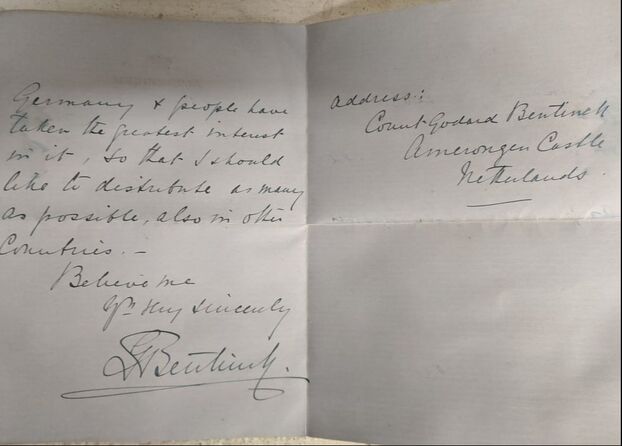 Germany & people have
taken the greatest interest
in it, so that I should
like to distribute as many
as possible, also in other
Countries. —
Believe me
Yrs very sincerely
GBentinck.
Address:
Count Godard Bentinck
Amerongen Castle
Netherlands.